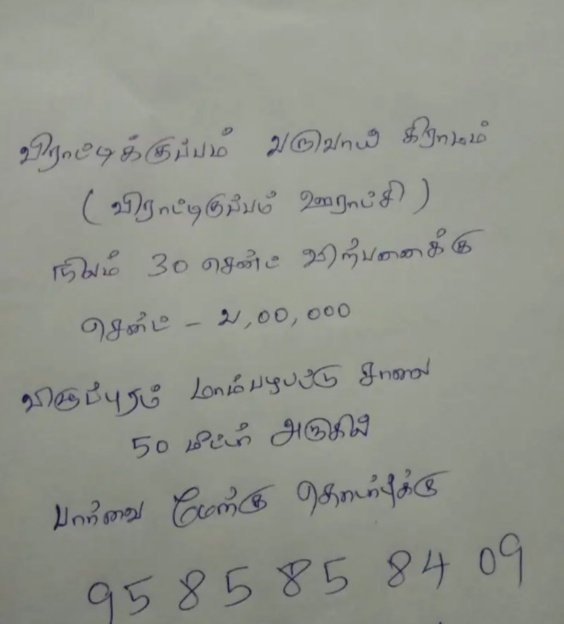 விராட்டிக்குப்பம் வருவாய் கிராமம்
( விராட்டிகுப்பம் ஊராட்சி )
நிலம் 30 சென்ட் விற்பனைக்கு
சென்ட் - 2,00,000
விழுப்புரம் மாம்பழபட்டு சாலை
50 மீட்டர் அருகில்
பார்வை
95 85 85 84 09